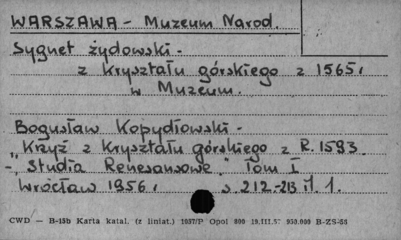 WARSZAWA - Muzeum Narod.
Sygnet żydowski -
z Kryształu górskiego z 1565,
w Muzeum.
Bogusław Kopydłowski -
"Krzyż z Kryształu górskiego z R. 1593.
- "Studia Renesansowe" Tom I
Wrocław 1956, s. 212-213 il. 1.
CWD — B-15b Karta katal. (z liniat.) 1937/P Opol 800 19.III.5 950.000 B-ZS-58